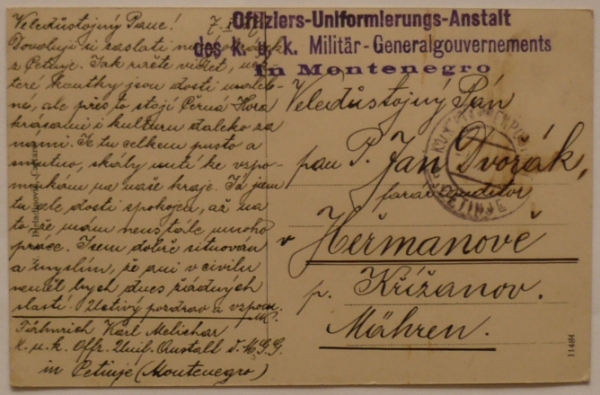 Veledůstojný Pane!
Dovoluji si zaslati
z Cetinje. Jak račte vidět,
teré koutky jsou dosti
né, ale přes to stojí Černá Hora
krásami i kulturou daleko za
námi. Je tu celkem pusto a
smutno, skály nutí ke vzpo-
mínkám na naše kraje. Já jsem
tu ale dosti spokojen, až na
to že mám neustále mnoho
práce. Jsem dobře situován
a myslím, že ani v civilu
bych dnes žádných
slastí. Uctivý pozdrav a vzpom.
Karl Melichar
K. u. k. Offz. Unif. Anstalt d. M. G. G.
in Cetinje (Montenegro)
Offiziers-Uniformierungs-Anstalt
des k. u. k. Militär-Generalgouvernements
in Montenegro
Veledůstojný Pán
pan P. Jan Dvořák,
farář
v Heřmanově
p. Křížanov.
Mähren.
CETINJE
11484